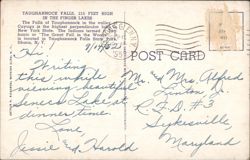 TAUGHANNOCK FALLS, 215 FEET HIGH
IN THE FINGER LAKES
The Falls of Taughannock in the valley
Cayuga is the highest perpendicular
New York State. The Indians termed it
to "The Great Fall in the Woods"
is located in Taughannock Falls State Park,
Ithaca, N. Y.
POST CARD
Fri.
Writing
this while
viewing beautiful
Seneca Lake at
dinner time.
Love,
Jessie and Harold
Mr. and Mrs. Alfred
Linton, Jr.
R.F.D. #3
Sykesville
Maryland